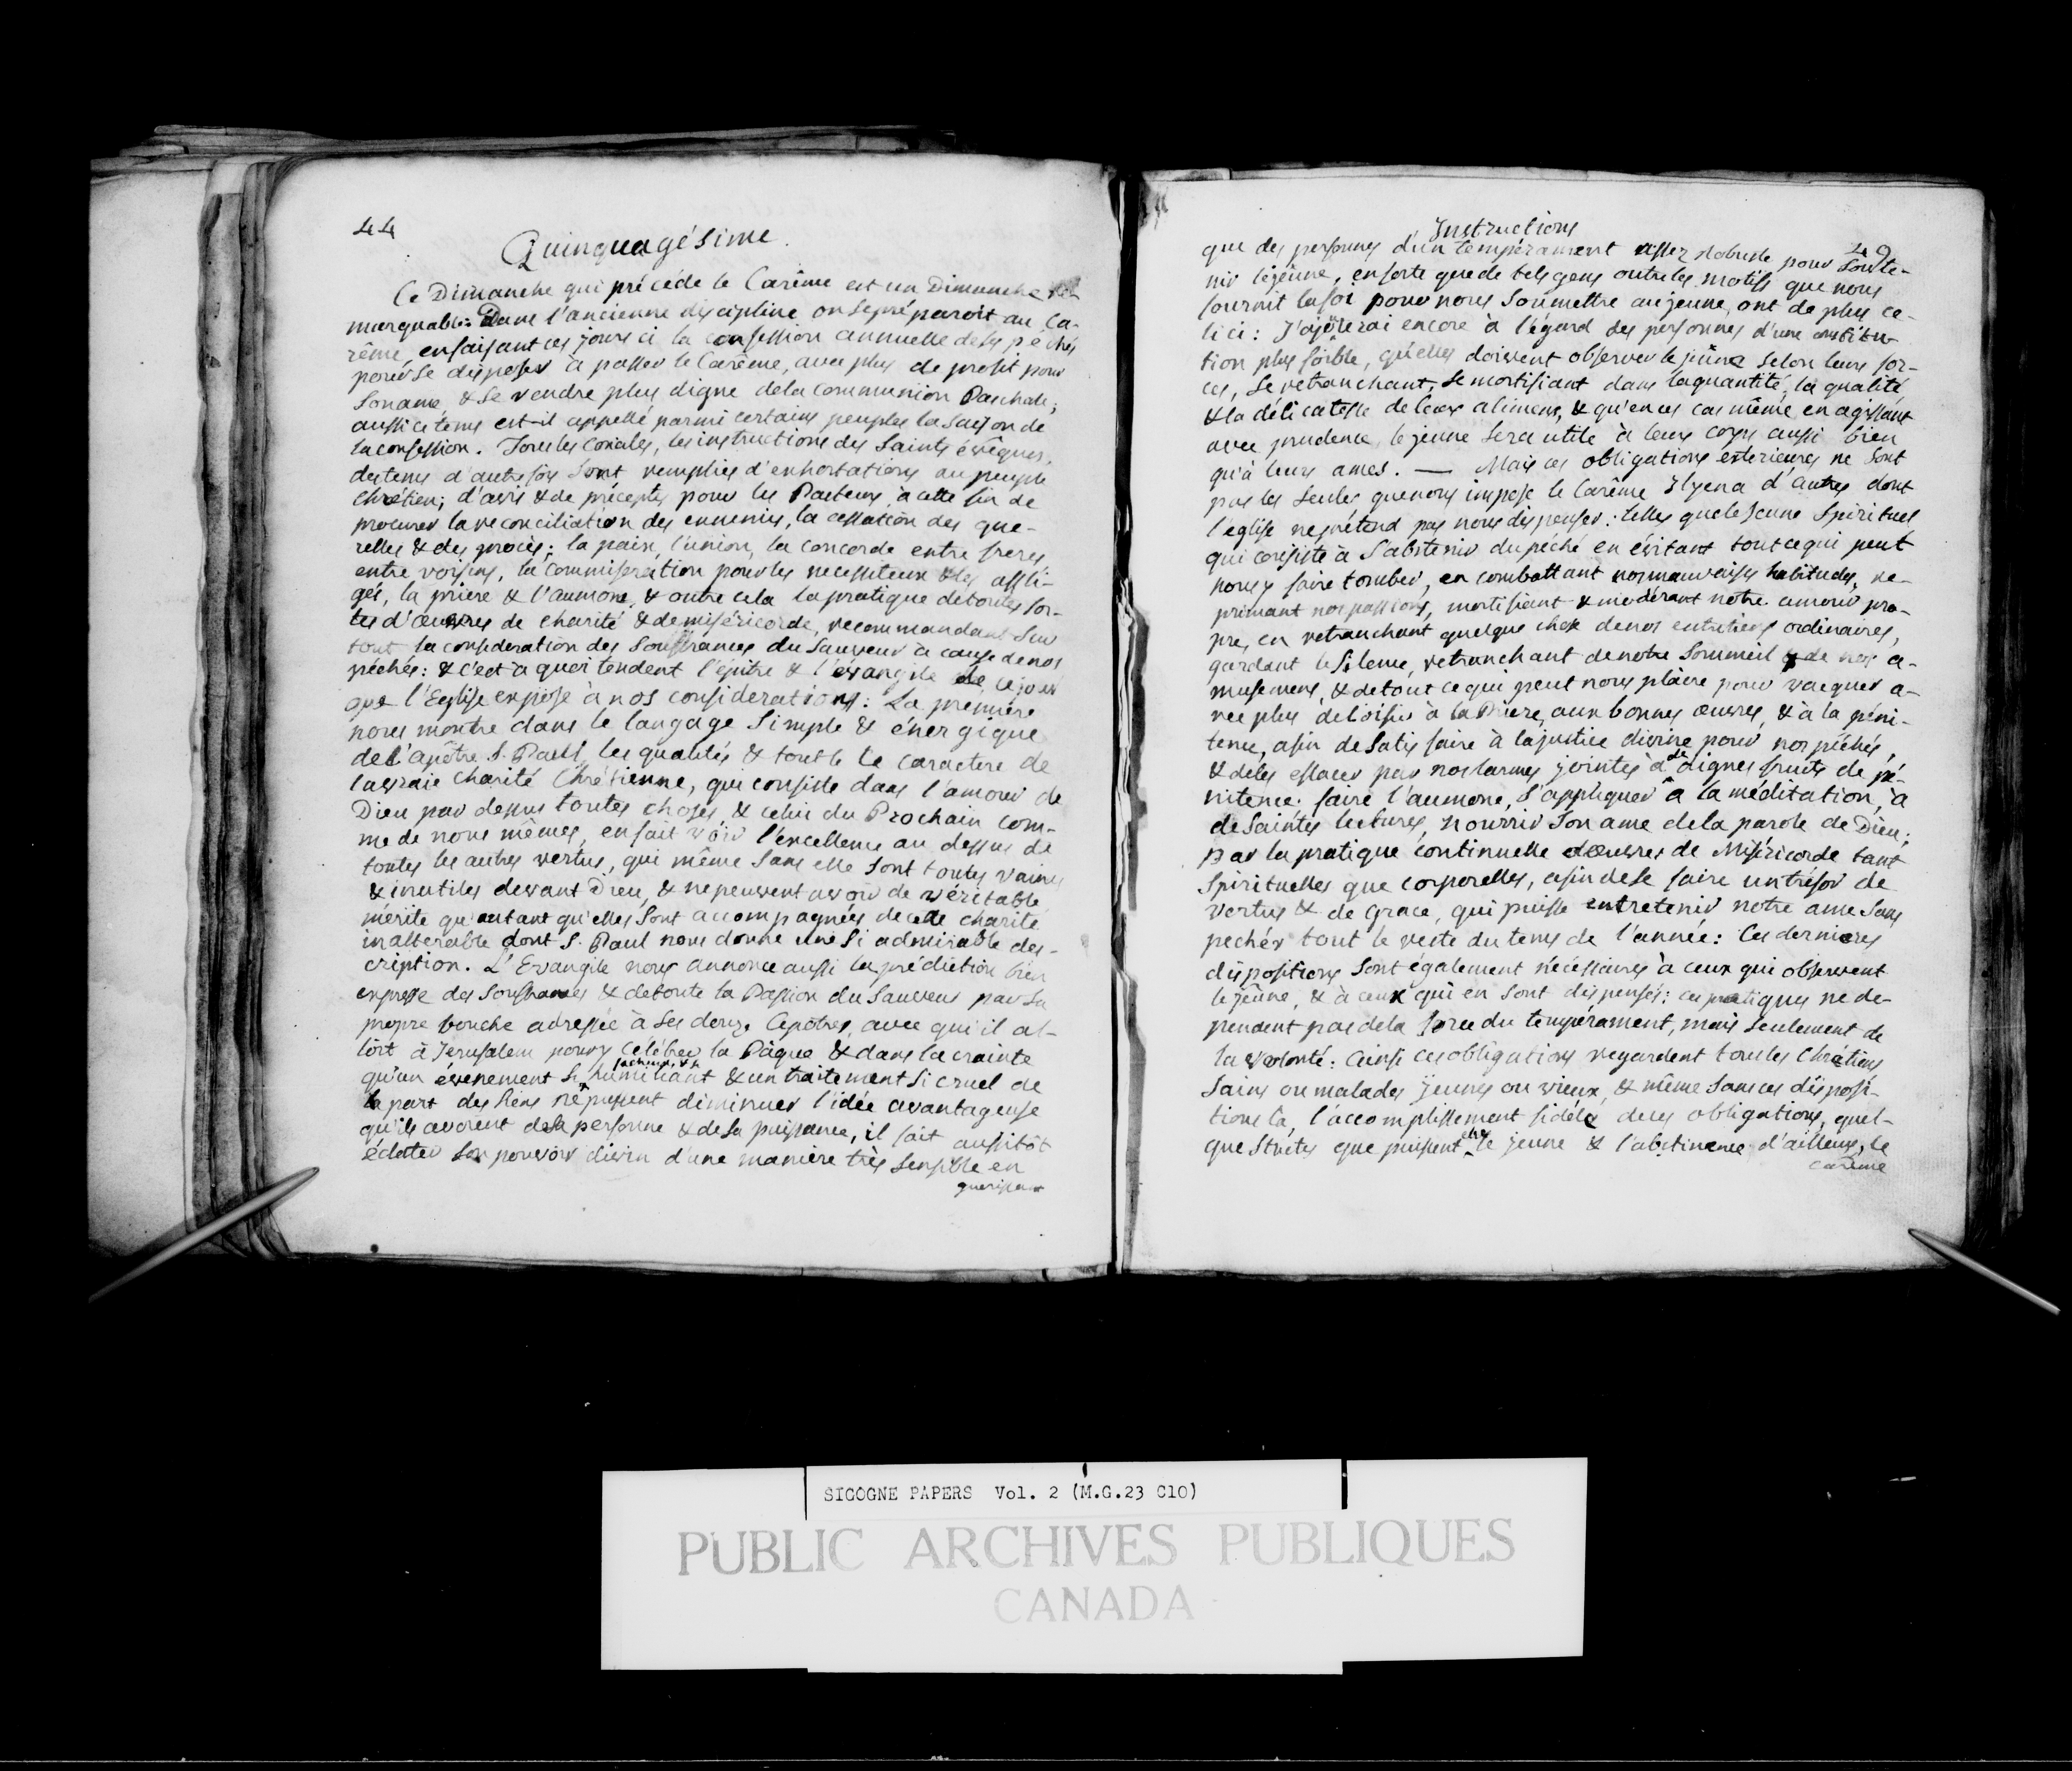 44
Quinquagésime.
Ce Dimanche qui précéde le Carême est un Dimanche re-
marquable: Dans l'ancienne discipline on se préparoit au Ca-
rême, en faisant ces jours ci la confession annuelle de ses péchés
pour se disposer à passer le Carême, avec plus de profit pour
son ame, & se rendre plus digne de la communion Paschale;
aussi ce tems est-il appellé parmi certains peuples la saison de
la confession. Tous les conciles, les instructions des Saints évêques,
des tems d'autrefois sont remplies d'exhortations au peuple
chrétien; d'avis & de préceptes pour les Pasteurs, à cette fin de
procurer la reconciliation des ennemis, la cessation des que-
relles & des procès; la paix, l'union, la concorde entre freres,
entre voisins, la commiseration pour les necessiteux & les affli-
gés, la priere & l'aumone, & outre cela la pratique de toutes sor-
tes d'œuvres de charité & de miséricorde, recommandant sur
tout la consideration des souffrances du Sauveur à cause de nos
péchés: & c'est à quoi tendent l'épitre & l'évangile de ce jour
que l'Eglise expose a nos considerations: La premiere
nous montre dans le langage simple & énergique
de l'apôtre S. Paul, les qualités & tout le caractere de
la vraie charité Chrétienne, qui consiste dans l'amour de
Dieu par dessus toutes choses, & celui du Prochain com-
me de nous mêmes, en fait voir l'excellence au dessus de
toutes les autres vertus, qui même sans elle sont toutes vaines
& inutiles devant Dieu, & ne peuvent avoir de véritable
mérite qu'autant qu'elles sont accompagnées de cette charité
inalterable dont S. Paul nous donne une si admirable des-
cription. L'Evangile nous annonce aussi la prédiction bien
expresse des souffrances & de toute la Passion du Sauveur par sa
propre bouche adressée à ses douze Apôtres, avec qui il al-
loit à Jerusalem pour y celébrer la Pâque & dans la crainte
qu'un évenement si humiliant & un traitement si cruel de
la part des siens ne pussent diminuer l'idée avantageuse
qu'ils avoient de sa personne & de sa puissance, il fait aussitôt
éclater son pouvoir divin d'une maniere très sensible en
guerissant
Instructions
49
que des personnes d'un tempérament assez robuste pour soute-
nir le jeûne, en sorte que de tels gens outre les motifs que nous
fournit la foi pour nous soumettre au jeune, ont de plus ce-
lui ci: J'ajoûterai encore à l'égard des personnes d'une constitu-
tion plus foible, qu'elles doivent observer le jeûne selon leurs for-
ces, se retranchant, se mortifiant dans la quantité, la qualité
& la délicatesse de leurs alimens, & qu'en ces cas même en agissant
avec prudence le jeune sera utile à leurs corps aussi bien
qu'à leurs ames. — Mais ces obligations exterieures ne sont
pas les seules que nous impose le Carême Il y en a d'autres dont
l'église ne prétend pas nous dispenser: telles que le Jeune Spirituel
qui consiste à s'abstenir du péché en évitant tout ce qui peut
nous y faire tomber, en combattant nos mauvaises habitudes, re-
primant nos passions, mortifiant & moderant notre amour pro-
pre, en retranchant quelque chose de nos entretiens ordinaires,
gardant le silence, retranchant de notre sommeil & de nos a-
musemens, & de tout ce qui peut nous plaire pour vacquer a-
vec plus de loisir à la Priere, aux bonnes œuvres, & à la péni-
tence, afin de satisfaire à la justice divine pour nos péchés,
& de les effacer par nos larmes jointes à de dignes fruits de pé-
nitence. faire l'aumone, s'appliquer à la méditation, à
de saintes lectures, nourrir son ame de la parole de Dieu;
par la pratique continuelle d'œuvres de Miséricorde tant
spirituelles que corporelles, afin de se faire un trésor de
vertus & de grace, qui puisse entretenir notre ame sans
pecher tout le reste du tems de l'année: Ces dernieres
dispositions sont également nécessaires à ceux qui observent
le jeûne, & à ceux qui en sont dispensés: ces pratiques ne de-
pendent pas de la force du tempérament, mais seulement de
la volonté: Ainsi ces obligations regardent tous les chrétiens
sains ou malades jeunes ou vieux, & même sans ces disposi-
tions là, l'accomplissement fidéle de ces obligations, quel-
que strictes que puissent etre le jeune & l'abstinence d'ailleurs, le
carême
SIGOGNE PAPERS Vol. 2 (M.G.23 C10)
PUBLIC ARCHIVES PUBLIQUES
CANADA